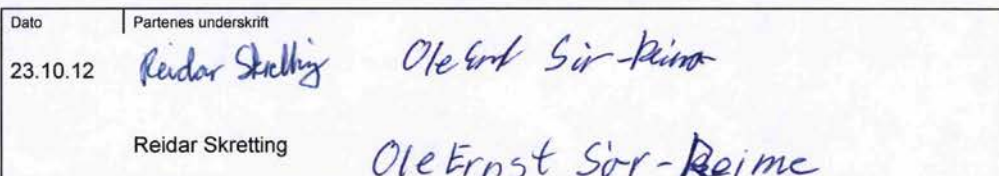 Dato Partenes underskrift
23.10.12 Reidar Skretting Ole Ernst Sør-Reime
Reidar Skretting Ole Ernst Sør-Reime